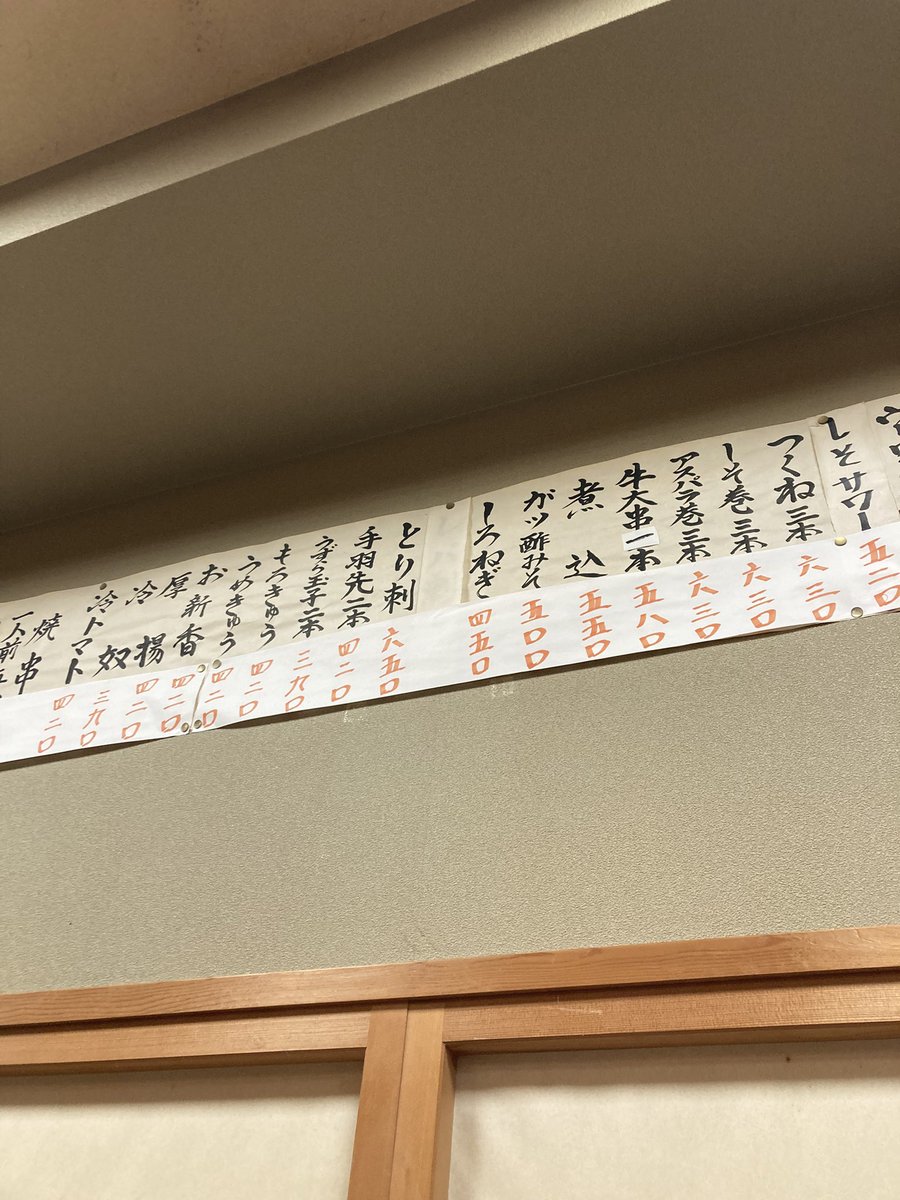 しそサワー 五二〇
つくね三本 六三〇
しそ巻三本 六三〇
アスパラ巻三本 六三〇
牛大串一本 五八〇
煮込 五五〇
ガツ酢みそ 五〇〇
しろねぎ 四五〇
とり刺 六五〇
手羽先二本 四二〇
うずら玉子二本 三九〇
もろきゅう 四二〇
うめきゅう 四二〇
お新香 四二〇
厚揚 四二〇
冷奴 三九〇
冷トマト 四二〇
焼串
一人前